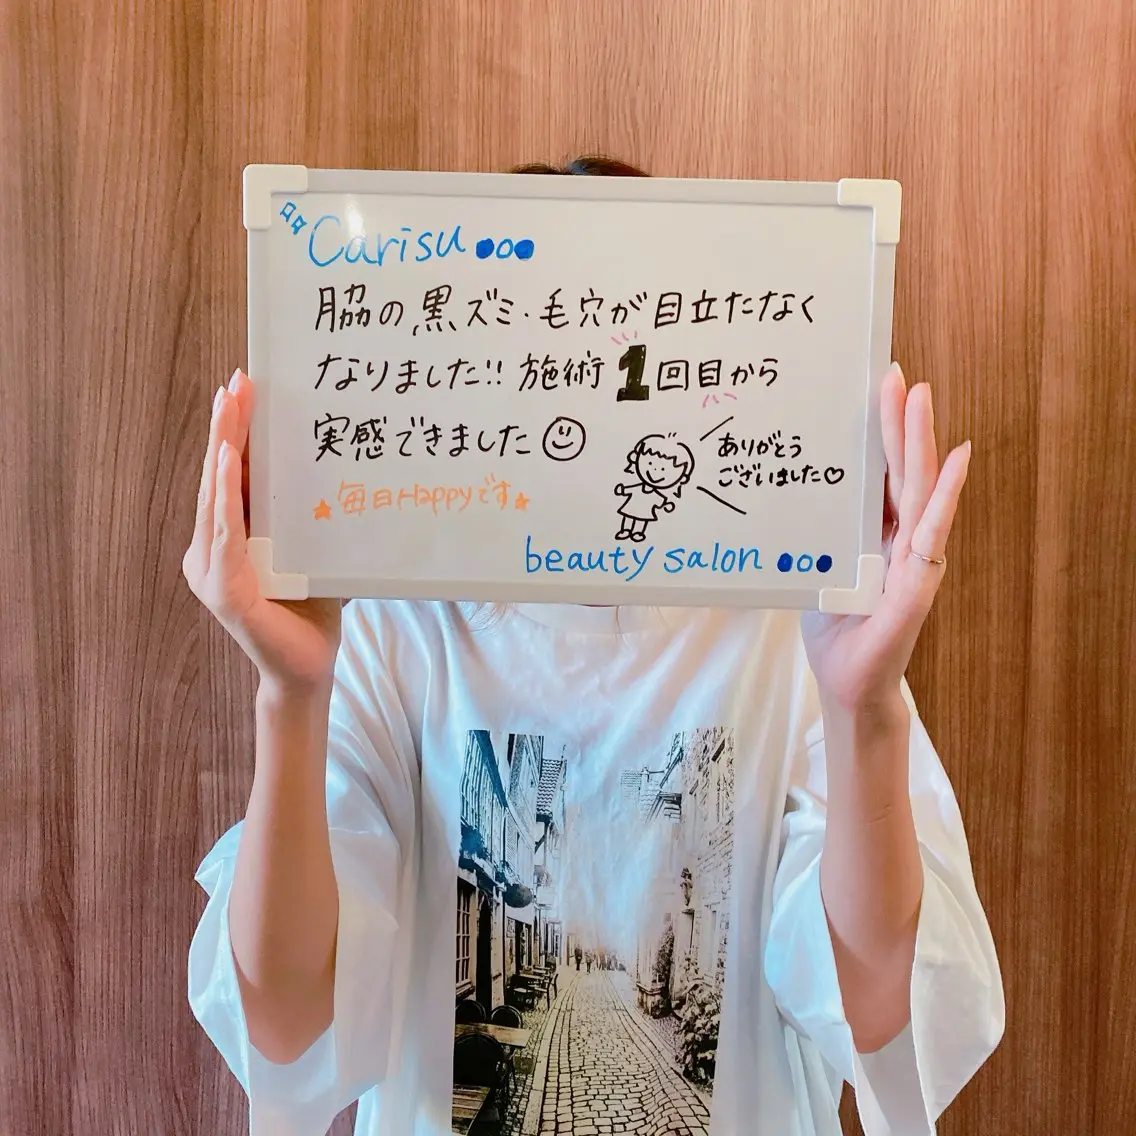 Carisu●○●
脇の黒ズミ・毛穴が目立たなく
なりました!! 施術1回目から
実感できました
ありがとう
ございました♡
★毎日Happyです★
beauty salon ●○●